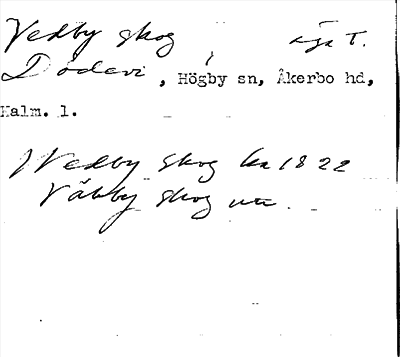 Vedby skog äga T.
Dödevi, Högby sn, Åkerbo hd,
Kalm. l.
Wedby skog ka 1822
Väbby skog utt.